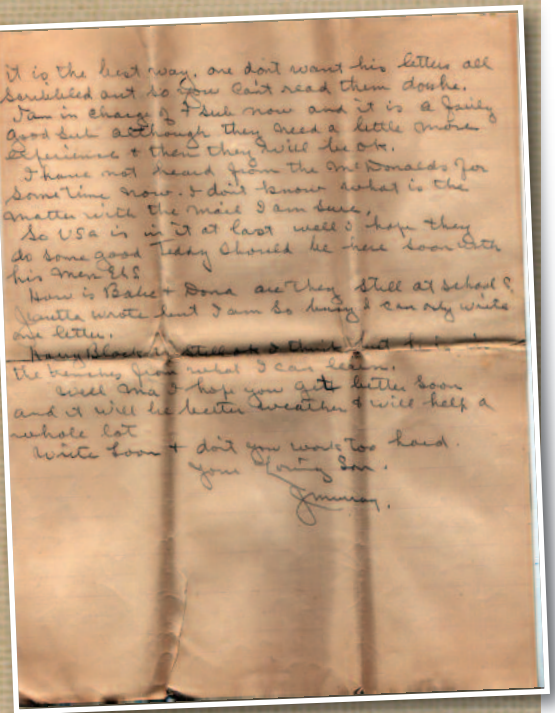 it is the best way. one don't want his letters all
scribbled out so you can't read them do he.
I am in charge of + sub now and it is a fairly
good sub although they need a little more
experience + then they will be ok.
I have not heard from the McDonalds for
sometime now. I don't know what is the
matter with the mail I am sure,
So USA is in it at last well I hope they
do some good Teddy should be here soon with
his men
How is Babe + Dona are they still at school?
wrote but I am so busy I can only write
one letter.
Harry Black is still ok I think
the trenches from what I can learn.
Well Ma I hope you get better soon
and it will be better weather & will help a
whole lot
Write soon + don't you work too hard.
Your Loving Son.
JMurray.